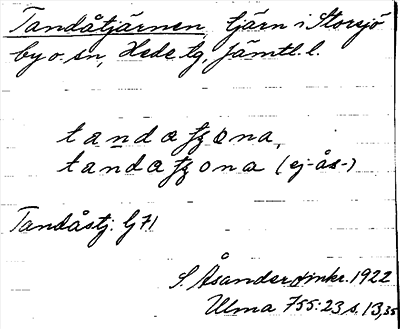 Tandåtjärnen, tjärn i Storsjö
by o. sn, Hede tg, Jämtl. l.
tandaꞙona,
tandaꞙona (ej -ås-)
Tandåstj: G 71
S. Åsander jmkr. 1922
Ulma 755:23 s. 13, 35